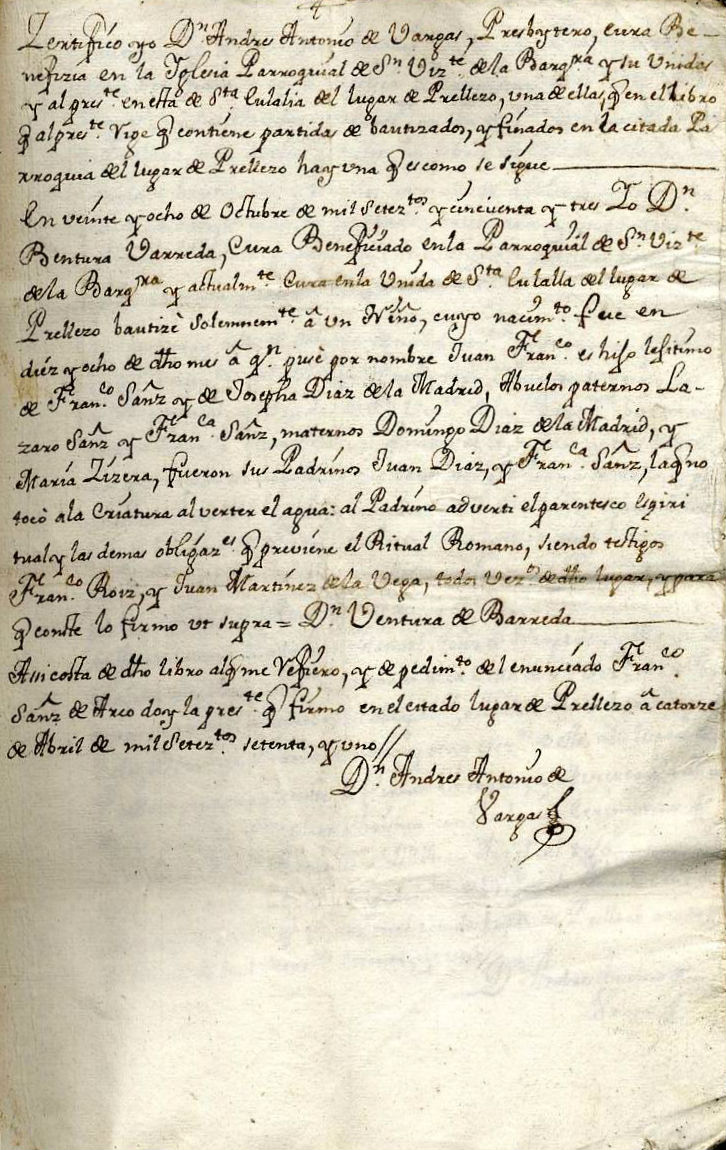 Zertifico yo Dn Andres Antonio de Vargas, Presbytero, Cura Be-
nefizia en la Iglesia Parroquial de Sn Vizte de la Barqra y su Unidas
y al preste en esta de Sta Eulalia del lugar de Prellezo, una de ellas, q en el Libro
q al preste Vige q contiene partidas de bautizados, y finados en la citada Pa
rroquia del lugar de Prellezo hay una q es como se sigue
En veinte y ocho de Octubre de mil Seteztos y cincuenta y tres Yo Dn
Bentura Varreda, Cura Beneficiado en la Parroquial de Sn Vizte
de la Barqra y actualmte Cura en la Unida de Sta Eulalla del lugar de
Prellezo bautizè Solemnemte â un Niño, cuyo nacimto fue en
diez y ocho de dho mes â qn puse por nombre Juan Franco es hijo lejitimo
de Franco Sanz y de Josepha Diaz de la Madrid, Abuelos paternos La-
zaro Sanz y Franca Sanz, maternos Domingo Diaz de la Madrid, y
Maria Zizera, fueron sus Padrinos Juan Diaz, y Franca Sanz, la q no
tocò a la Criatura al verter el agua: al Padrino adverti el parentesco Espiri
tual y las demas obligazes q previene el Ritual Romano, siendo testigos
Franco Roiz, y Juan Martinez de la Vega, todos Vezos de dho lugar, y para
q conste lo firmo ut supra = Dn Ventura de Barreda
Assi costa de dho libro al q me Refiero, y de pedimto del enunciado Franco
Sanz de Arco doy la preste q firmo en el citado lugar de Prellezo â catorze
de Abril de mil Seteztos setenta, y uno //
Dn Andres Antonio de
Vargas